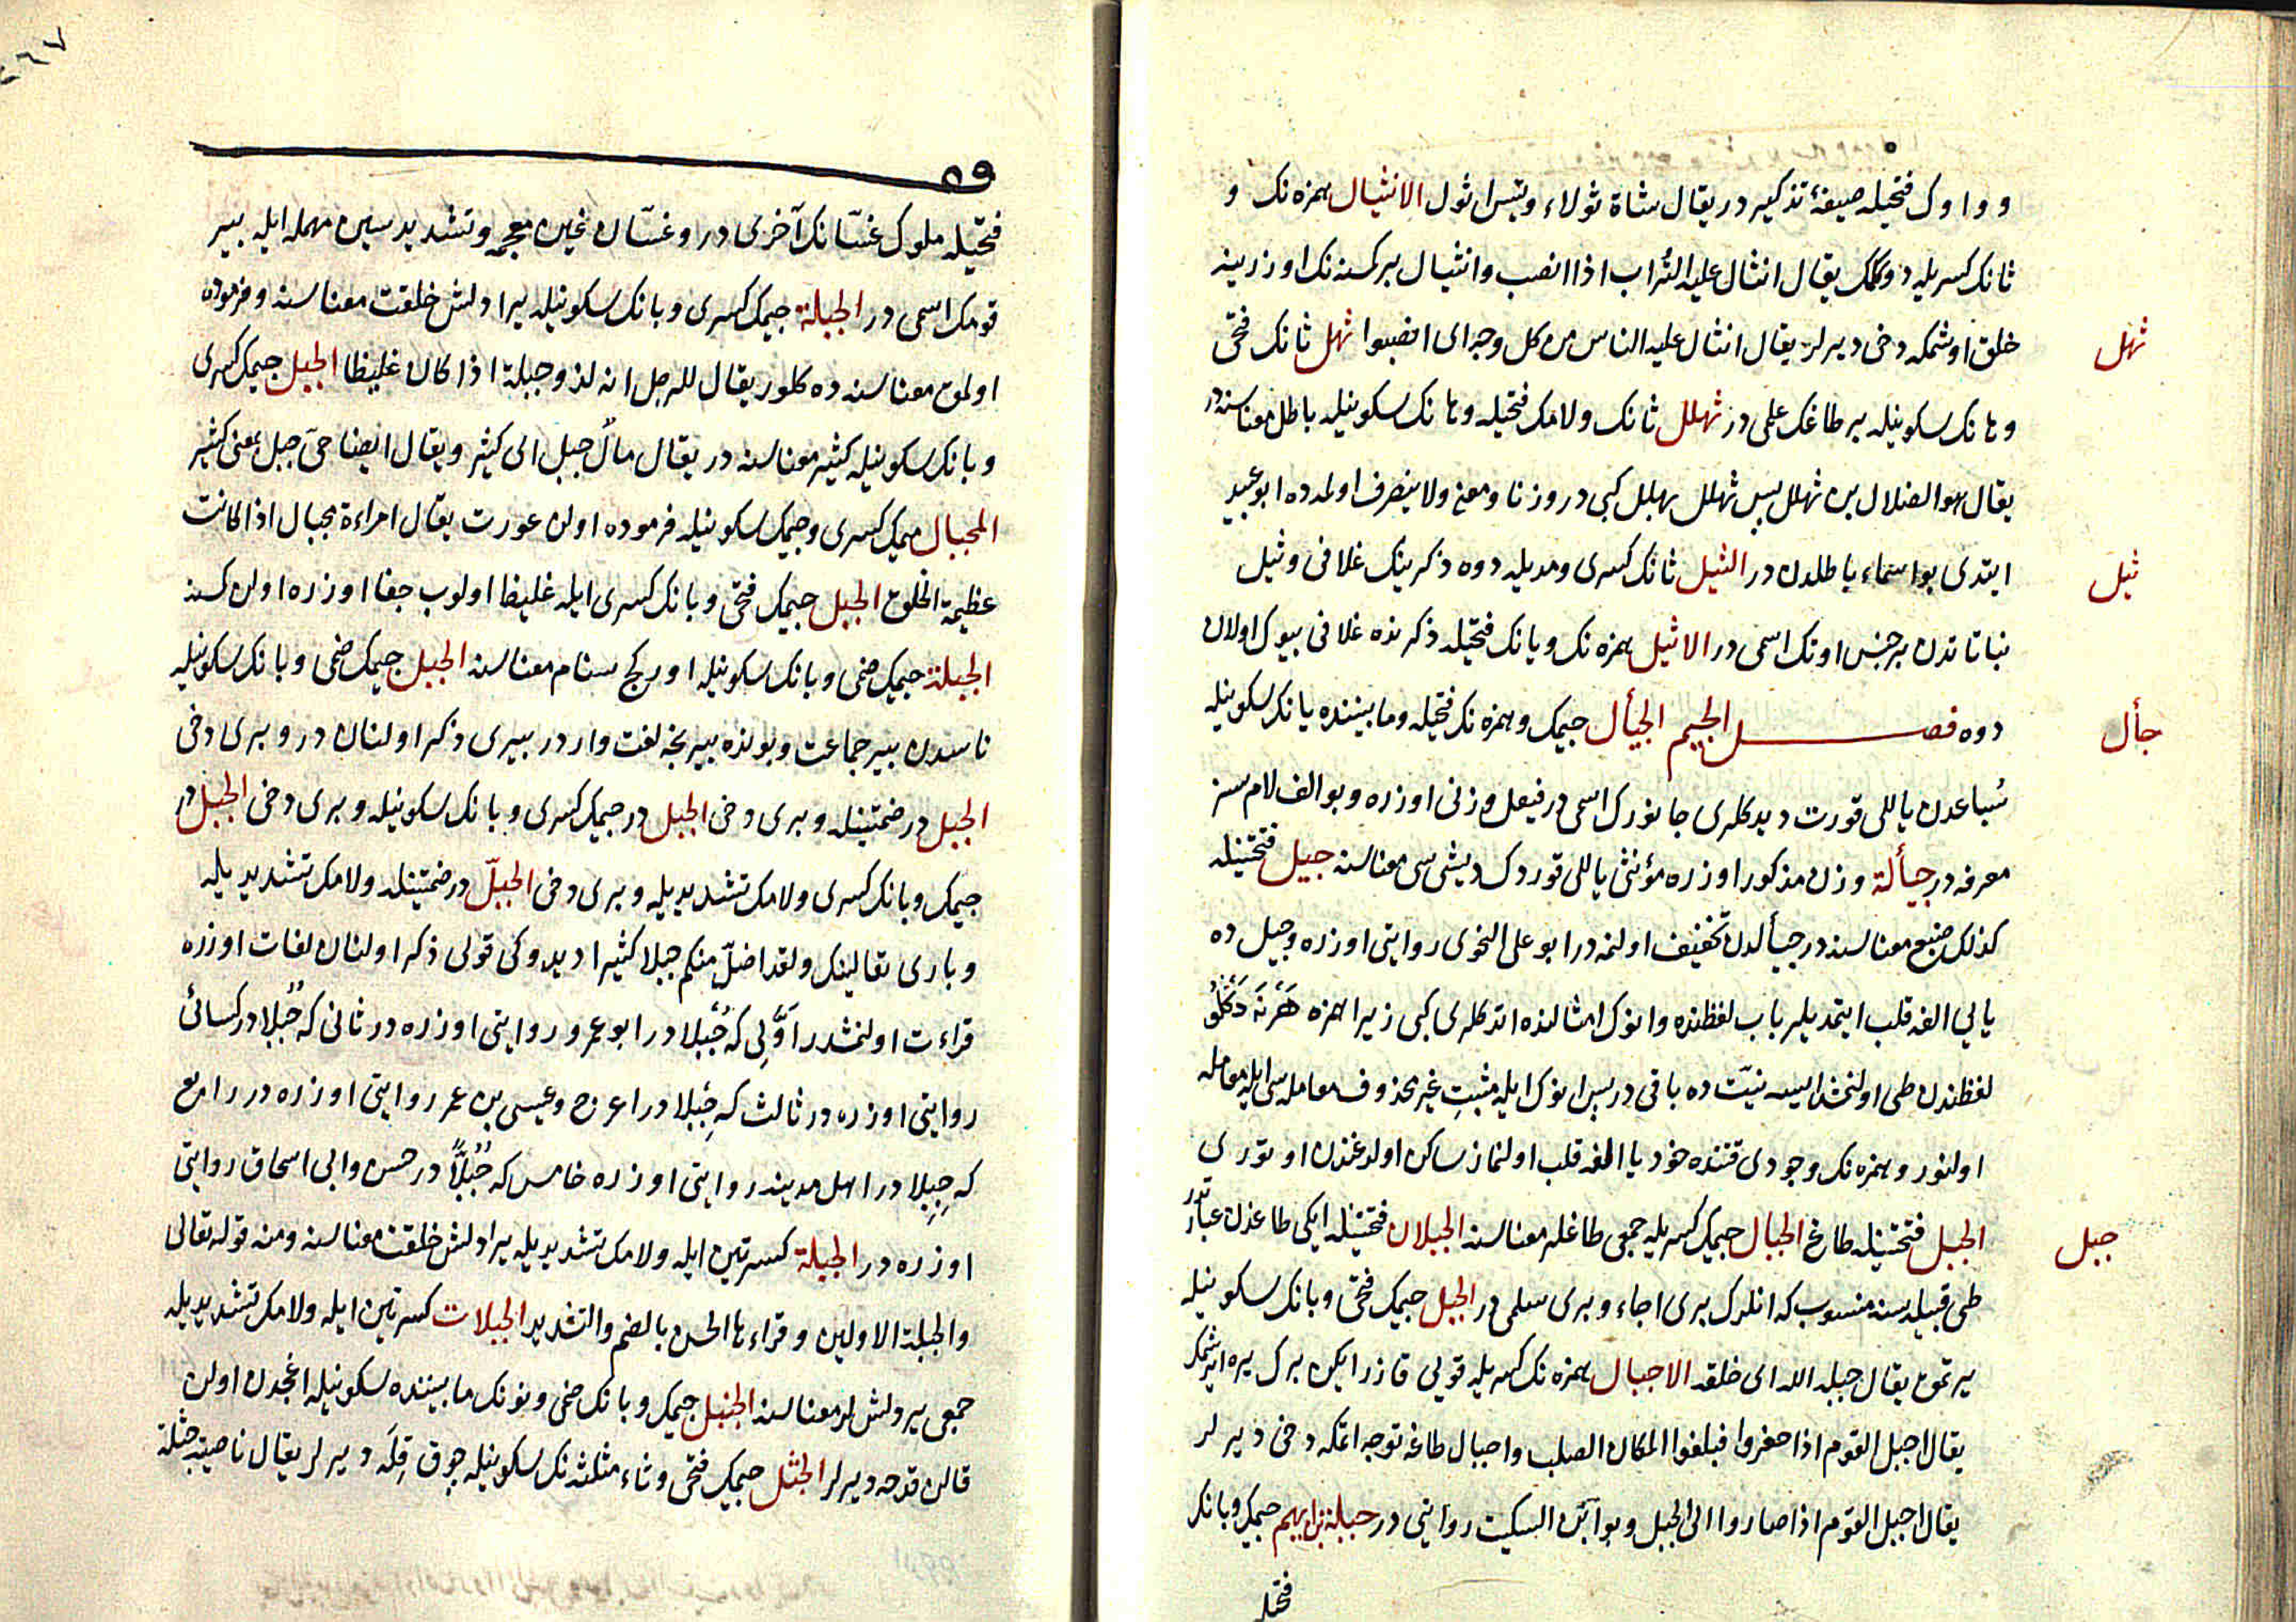 و واوك فتحيله صيغۀ تذكير در يقال شاة ثولاء وتيس اثول الانثيال همزه نك و
ثانك كسريله دوكلمك يقال انثال عليه التراب اذا انصب وانثيال بر كسنه نك اوزرينه
ثهل
خلق اوشمكه دخى ديرلر يقال انثال عليه الناس من كل وجه اى انصبوا ثهل ثانك فتحى
وهانك سكونيله بر طاغك علمى در ثهلل ثانك ولامك فتحيله وهانك سكونيله باطل معناسنه در
يقال هو الضلال بن ثهلل پس ثهلل بهلل كبى در وزنا ومعنى ولا ينصرف اولمده ابو عبيد
ثيل
ايتدى بو اسماء باطلدن در الثيل ثانك كسرى ومديله دوه ذكرينك غلافى وثيل
نباتاتدن بر جنس اوتك اسمى در الاثيل همزه نك ويانك فتحيله ذكرنده غلافى بيوك اولان
جأل
دوه فصل الجيم الجيأل جيمك وهمزه نك فتحيله ومابيننده يانك سكونيله
سباعدن ياللى قورت ديدكلرى جانورك اسمى در فيعل وزنى اوزره وبو الف لام سز
معرفه در جيألة وزن مذكور اوزره مؤنثى ياللى قوردك ديشى سى معناسنه جيل فتحتينله
كذلك ضبع معناسنه در جيألدن تخفيف اولنمه در ابو على النحوى روايتى اوزره وجيل ده
يايى الفه قلب ايتمديلر باب لفظنده وانوك امثالنده اتدكلرى كبى زيرا همزه
لفظندن طى اولنمش ايسه نيت ده باقى در پس انوك ايله مثبت غير محذوف معامله سى ايله معامله
اولنور وهمزه نك وجودى قتنده خود يا الفه قلب اولنماز ساكن اولدغندن اوتورى
جبل
الجبل فتحتينله طاغ الجبال جيمك كسريله جمعى طاغلر معناسنه الجبلان فتحتينله ايكى طاغدن عبارتدر
طى قبيله سنه منسوب كه انلرك برى اجاء وبرى سلمى در الجبل جيمك فتحى وبانك سكونيله
يرتمق يقال جبله الله اى خلقه الاجبال همزه نك كسريله قويى قازر ايكن برك يره ايرشمك
يقال اجبل القوم اذا حفروا فبلغوا المكان الصلب واجبال طاغه توجه اتمكه دخى ديرلر
يقال اجبل القوم اذا صاروا الى الجبل وبو ابن السكيت روايتى در جبلة بن ايهم جيمك وبانك
فتحيله
فتحيله ملوك غسانك آخرى در وغسان غين معجمه وتشديد سين مهمله ايله بير
قومك اسمى در الجبلة جيمك كسرى وبانك سكونيله يرادلش خلقت معناسنه وفرموده
اولمق معناسنه ده كلور يقال للرجل انه لذو جبلة اذا كان غليظا الجبل جيمك كسرى
وبانك سكونيله كثير معناسنه در يقال مال جبل اى كثير ويقال ايضا حى جبل بمعنى كثير
المجبال ميمك كسرى وجيمك سكونيله فرموده اولن عورت يقال امراءة مجبال اذا كانت
عظيمة الخلق الجبل جيمك فتحى وبانك كسرى ايله غليظا اولوب جفا اوزره اولن كسنه
الجبلة جيمك ضمى وبانك سكونيله اوركج سنام معناسنه الجبل جيمك ضمى وبانك سكونيله
ناسدن بير جماعت وبونده بير نجه لغت وار در بيرى ذكر اولنان در وبرى دخى
الجبل در ضمتينله وبرى دخى الجبل در جيمك كسرى وبانك سكونيله وبرى دخى الجبل در
جيمك وبانك كسرى ولامك تشديديله وبرى دخى الجبل در ضمتينله ولامك تشديديله
وبارى تعالينك ولقد اضل منكم جبلا كثيرا ديدوكى قولى ذكر اولنان لغات اوزره
قراءت اولنمشدر اولى كه جبلا در ابو عمرو روايتى اوزره در ثانى كه جبلا در كسائى
روايتى اوزره در ثالث كه جبلا در اعرج وعيسى بن عمر روايتى اوزره در رابع
كه جبلا در اهل مدينه روايتى اوزره خامس كه جبلا در حسن وابى اسحاق روايتى
اوزره در الجبلة كسرتين ايله ولامك تشديديله يرادلش خلقت معناسنه ومنه قوله تعالى
والجبلة الاولين وقراءها الحسن بالضم والتشديد الجبلات كسرتين ايله ولامك تشديديله
جمعى يردلشلر معناسنه الجنبل جيمك وبانك ضمى ونونك مابيننده سكونيله اغجدن اولن
قالن قدحه ديرلر الجثل جيمك فتحى وثاء مثلثه نك سكونيله چوق قله ديرلر يقال ناصية جثلة